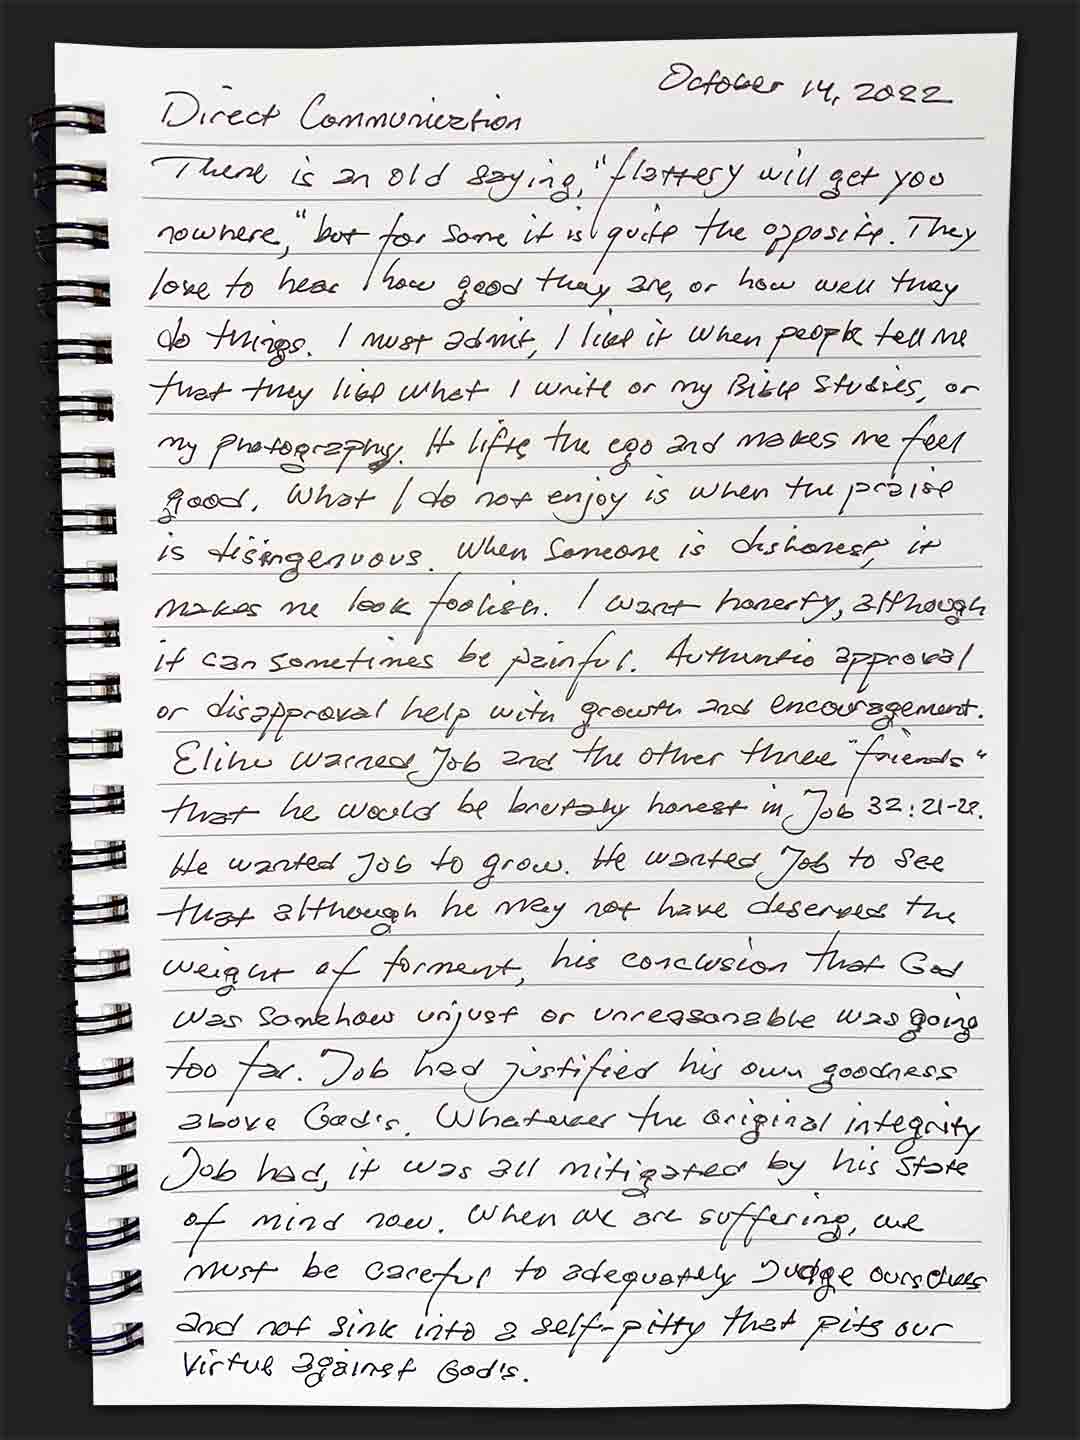 October 14, 2022
Direct Communication
There is an old saying, "flattery will get you
nowhere," but for some it is quite the opposite. They
love to hear how good they are, or how well they
do things. I must admit, I like it when people tell me
that they like what I write or my Bible studies, or
my photography. It lifts the ego and makes me feel
good. What I do not enjoy is when the praise
is disingenuous. When someone is dishonest, it
makes me look foolish. I want honesty, although
it can sometimes be painful. Authentic approval
or disapproval help with growth and encouragement.
Elihu warned Job and the other three "friends"
that he would be brutally honest in Job 32:21-22.
He wanted Job to grow. He wanted Job to see
that although he may not have deserved the
weight of torment, his conclusion that God
was somehow unjust or unreasonable was going
too far. Job had justified his own goodness
above God's. Whatever the original integrity
Job had, it was all mitigated by his state
of mind now. When we are suffering, we
must be careful to adequately judge ourselves
and not sink into a self-pitty that pits our
virtue against God's.